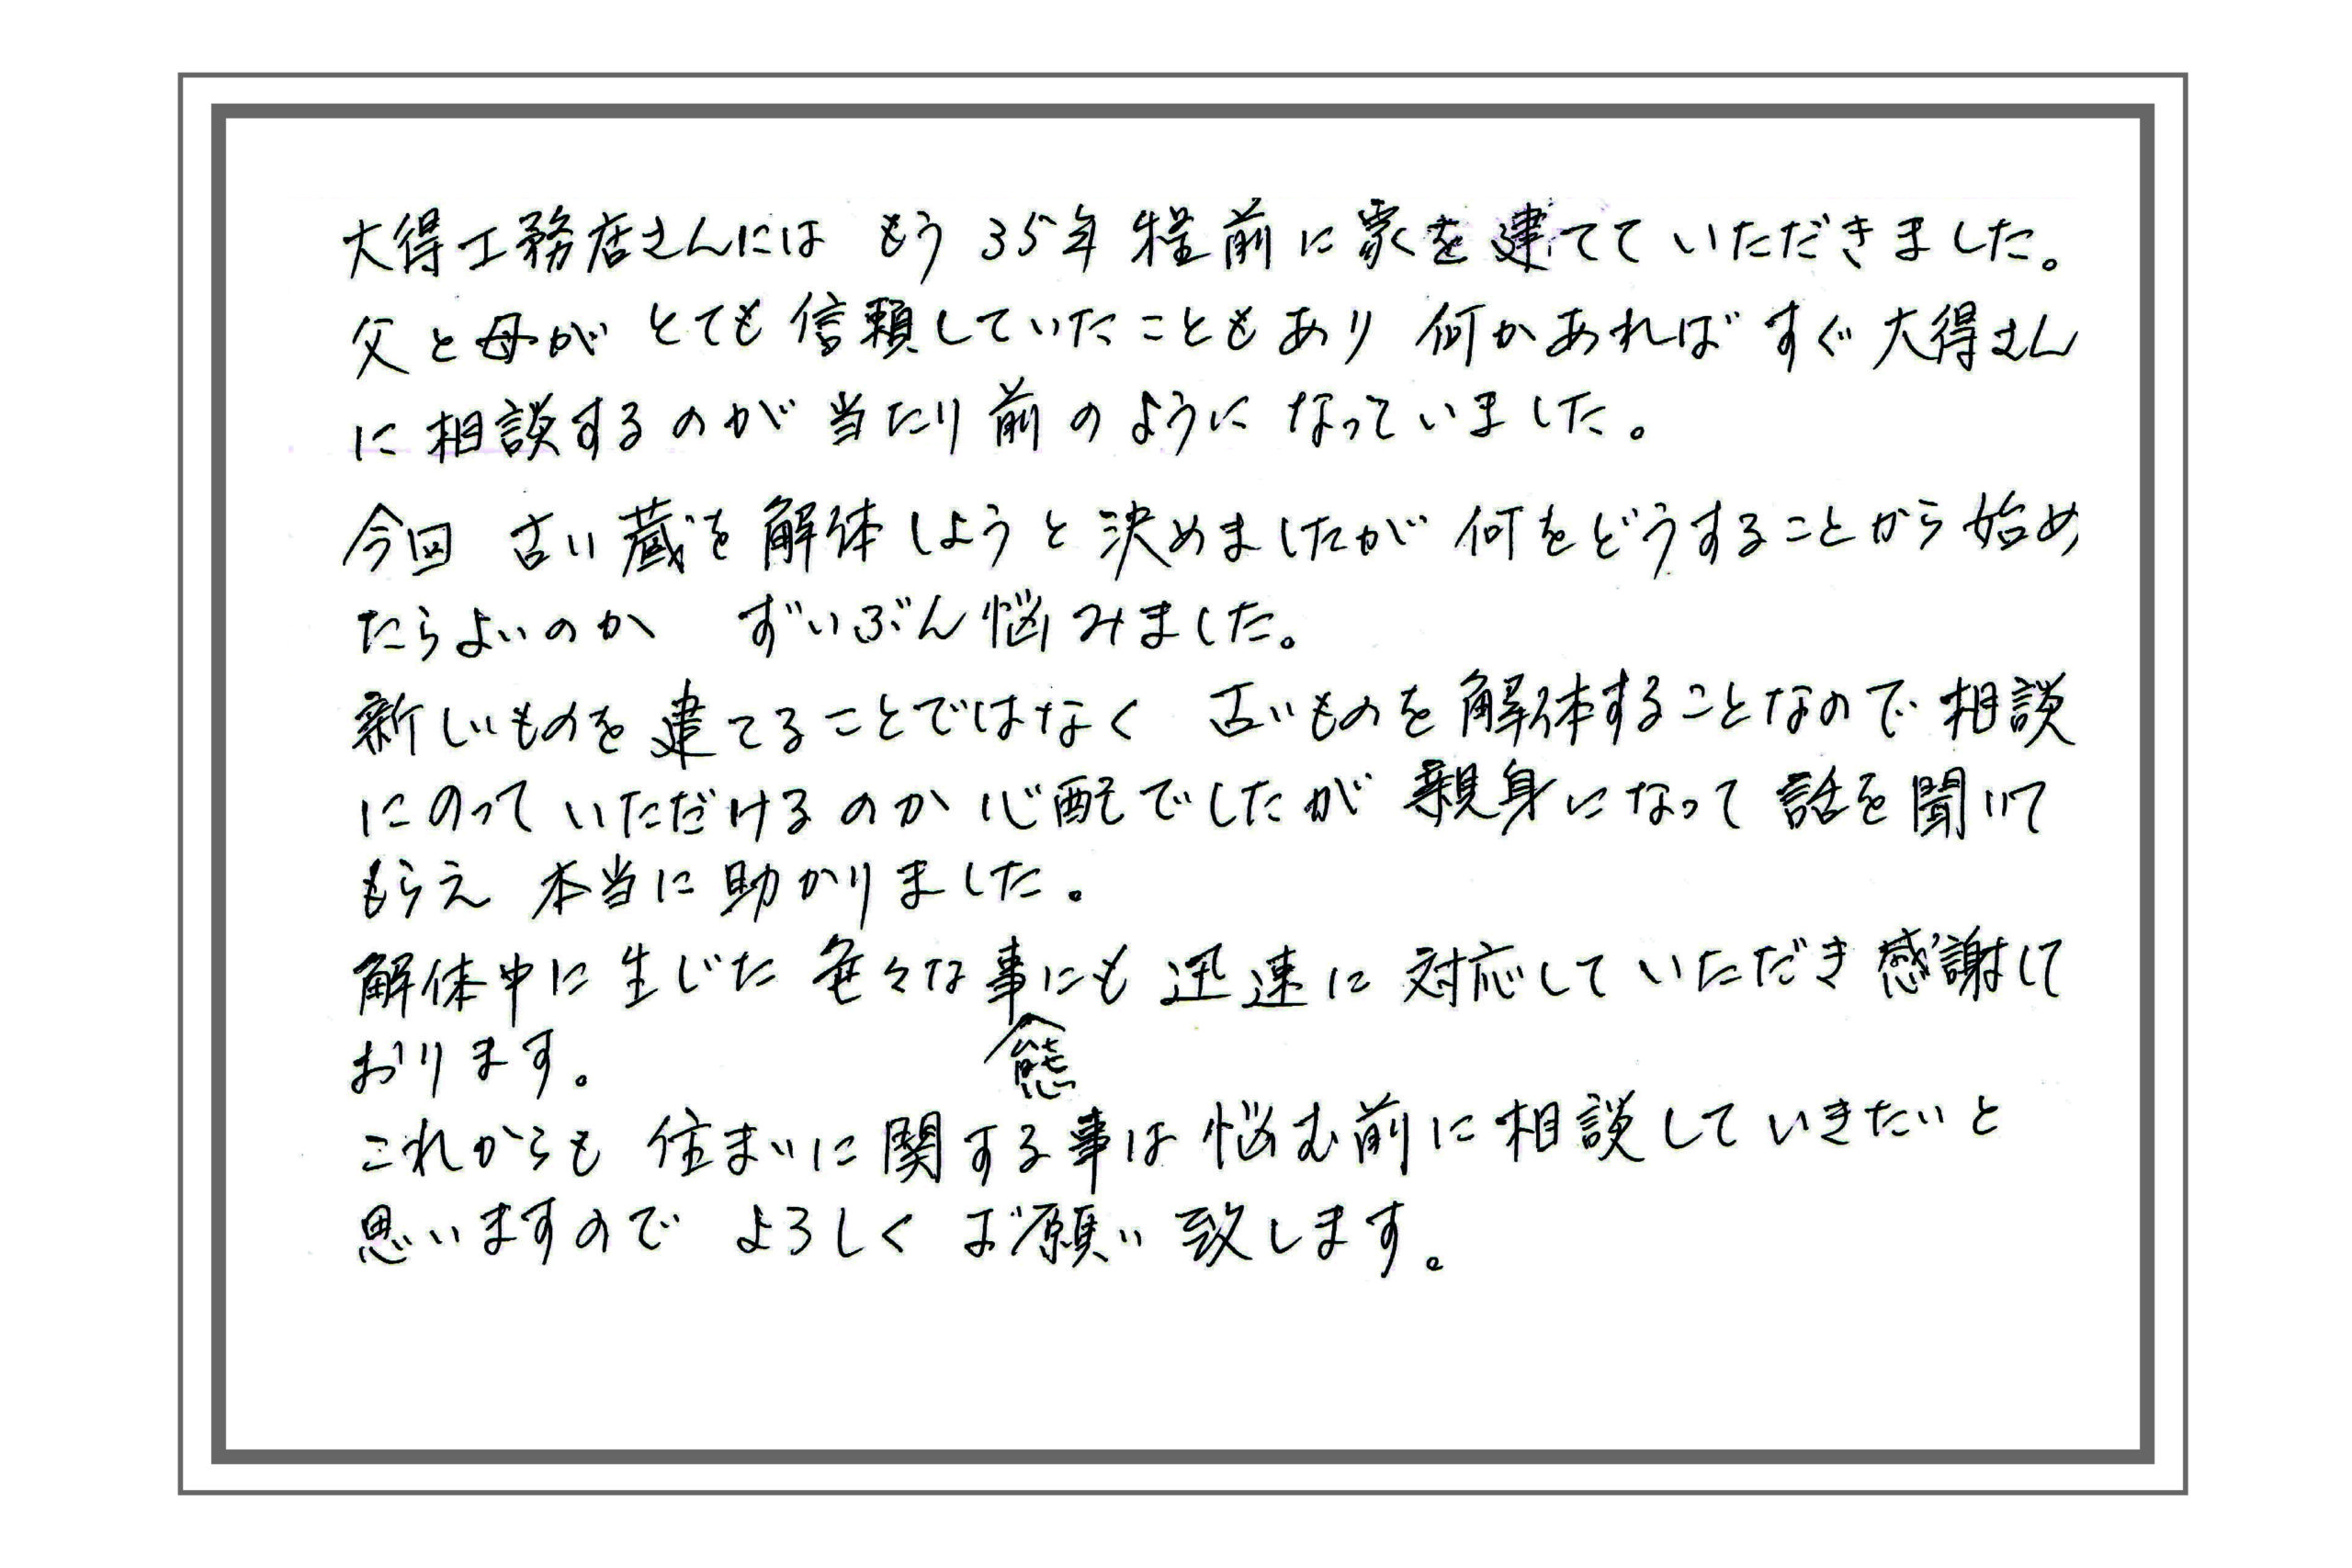 大得工務店さんには もう 35年 程前に家を建てていただきました。
父と母が とても信頼していたこともあり 何かあれば すぐ大得さん
に相談するのが当たり前のようになっていました。
今回 古い蔵を解体しようと決めましたが 何をどうすることから始め
たらよいのか ずいぶん悩みました。
新しいものを建てることではなく 古いものを解体することなので相談
にのっていただけるのか心配でしたが 親身になって話を聞いて
もらえ 本当に助かりました。
解体中に生じた色々な事態にも迅速に対応していただき感謝して
おります。
これからも 住まいに関する事は悩む前に相談していきたいと
思いますので よろしく お願い致します。